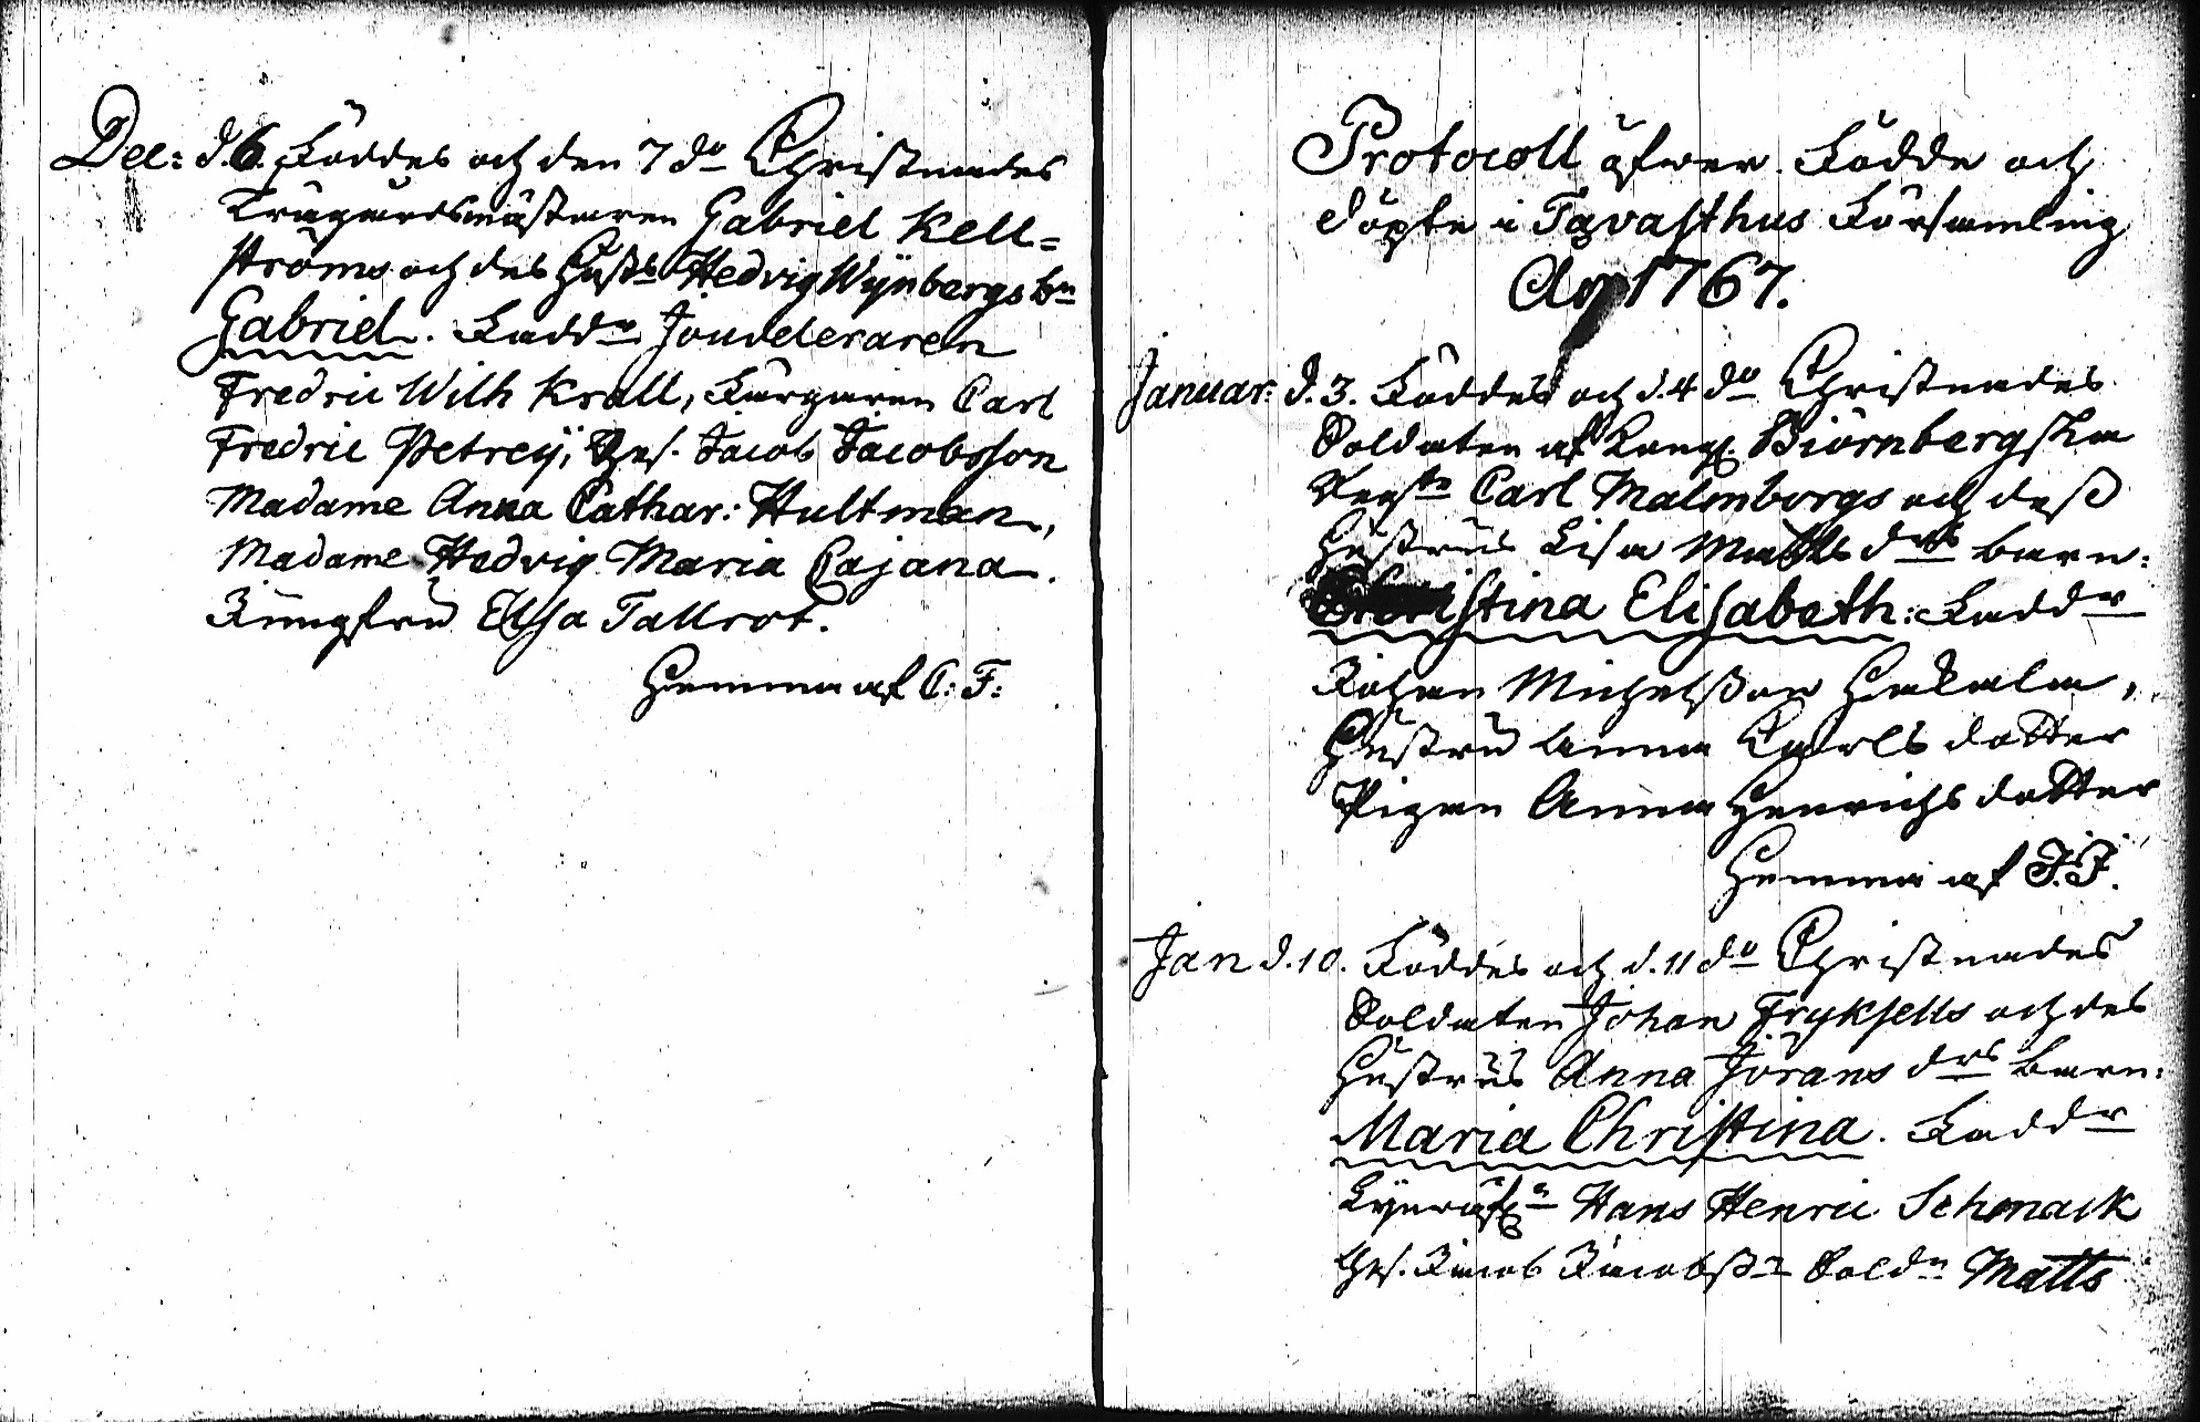 Dec: d. 6. Föddes och den 7 do Christnades
Trägårdsmästaren Gabriel Kell=
ströms och des Hust. Hedvig Wijnbergs bn
Gabriel. Faddr Jouveleraren
Fredric Wilh Krall, Färgaren Carl
Fredric Petreij, Ges. Jacob Jacobsson
Madame Anna Cathar: Hultman,
Madame Hedvig Maria Cajana.
Jungfru Elsa Tallrot.
Hemma af C: F:
Protocoll öfwer Födde och
döpte i Tavasthus Församling
Ao 1767.
Januar: d. 3. Föddes och d. 4 do Christnades
Soldaten af Kongl. Biörnbergska
Regte Carl Malmborgs och dess
Hustrus Lisa Matts drs barn:
Christina Elisabeth: Faddr
Johan Michelsson Hakala,
Hustru Anna Carls dotter
Pigan Anna Henrichs dotter
Hemma af J. F.
Jan d. 10. Föddes och d. 11 do Christnades
Soldaten Johan Frykfells och des
Hustrus Anna Jörans drs barn:
Maria Christina. Faddr
Hans Henric Schmack
Ges. Jacob Jacobss n Soldn Matts